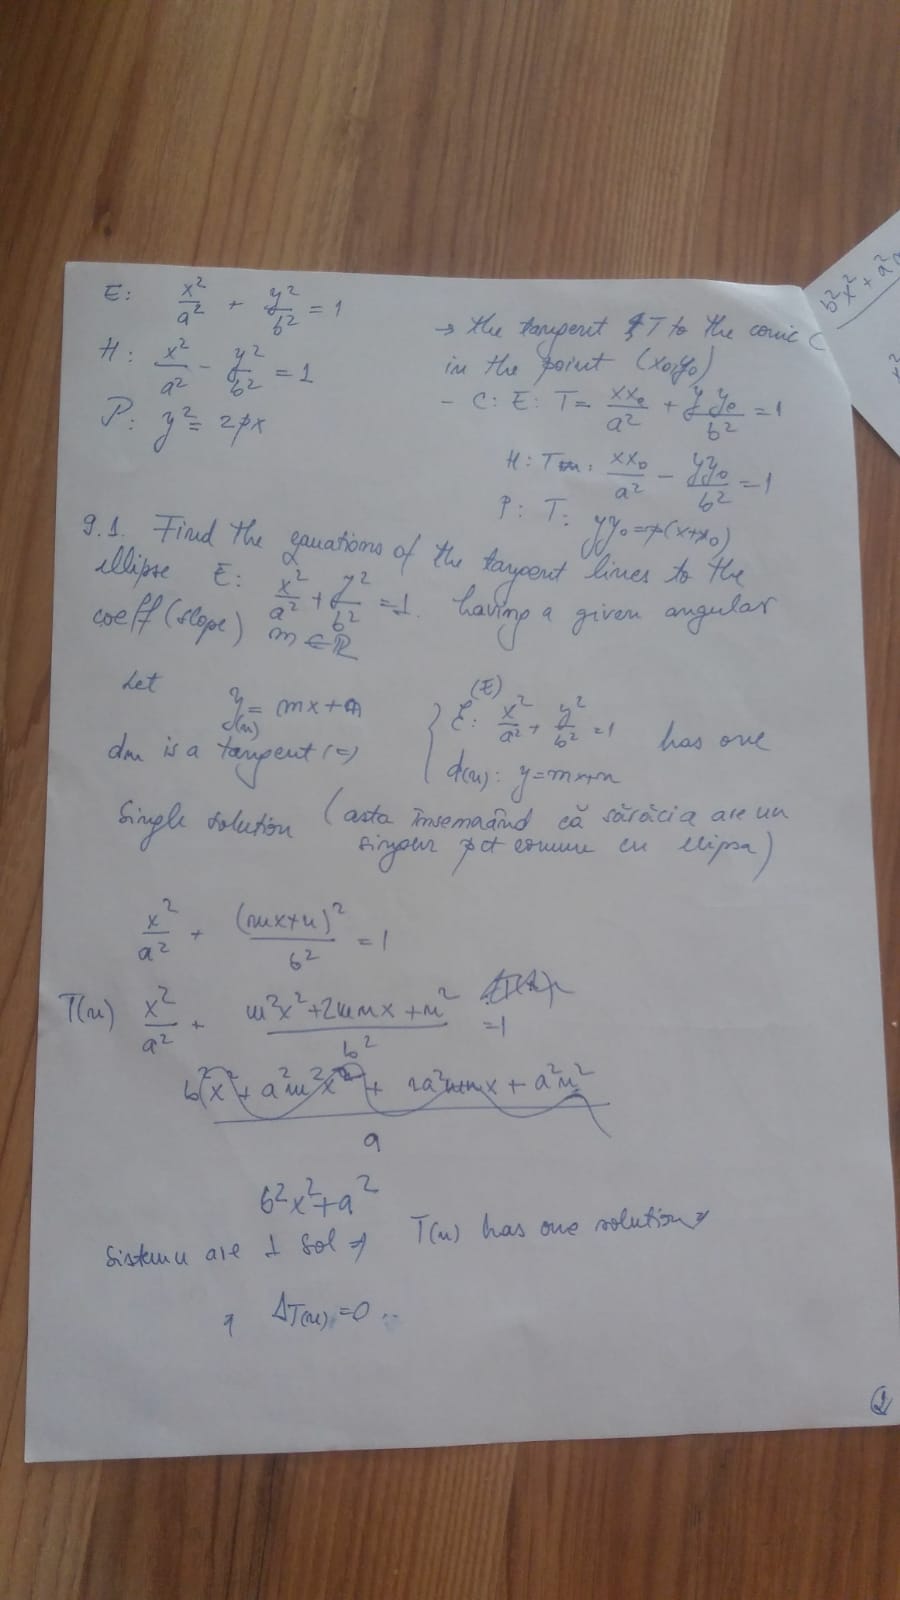 E: x²/a² + y²/b² = 1
H: x²/a² - y²/b² = 1
P: y² = 2px
→ the tangent T to the conic C
in the point (x₀,y₀)
- C: E: T= xx₀/a² + yy₀/b² = 1
H: T: xx₀/a² - yy₀/b² = 1
P: T: yy₀ = p(x+x₀)
9.1. Find the equations of the tangent lines to the
ellipse E: x²/a² + y²/b² = 1. having a given angular
coeff (slope) m ∈ ℝ
Let y = mx+n
d(n)
is a tangent (=)
{ (E)
E: x²/a² + y²/b² = 1
d(n): y=mx+n
has one
Single solution (asta însemaând că sărăcia are un
singur pct comun cu elipsa)
x²/a² + (mx+n)²/b² = 1
T(n) x²/a² + m²x²+2mnx+n²/b² = 1
b²x² + a²m²x² + 2a²mnx + a²n²
a
b²x²+a²
Sistemu are 1 sol ⇒ T(n) has one solution ⇒
ΔT(n) = 0
b²x² + a²